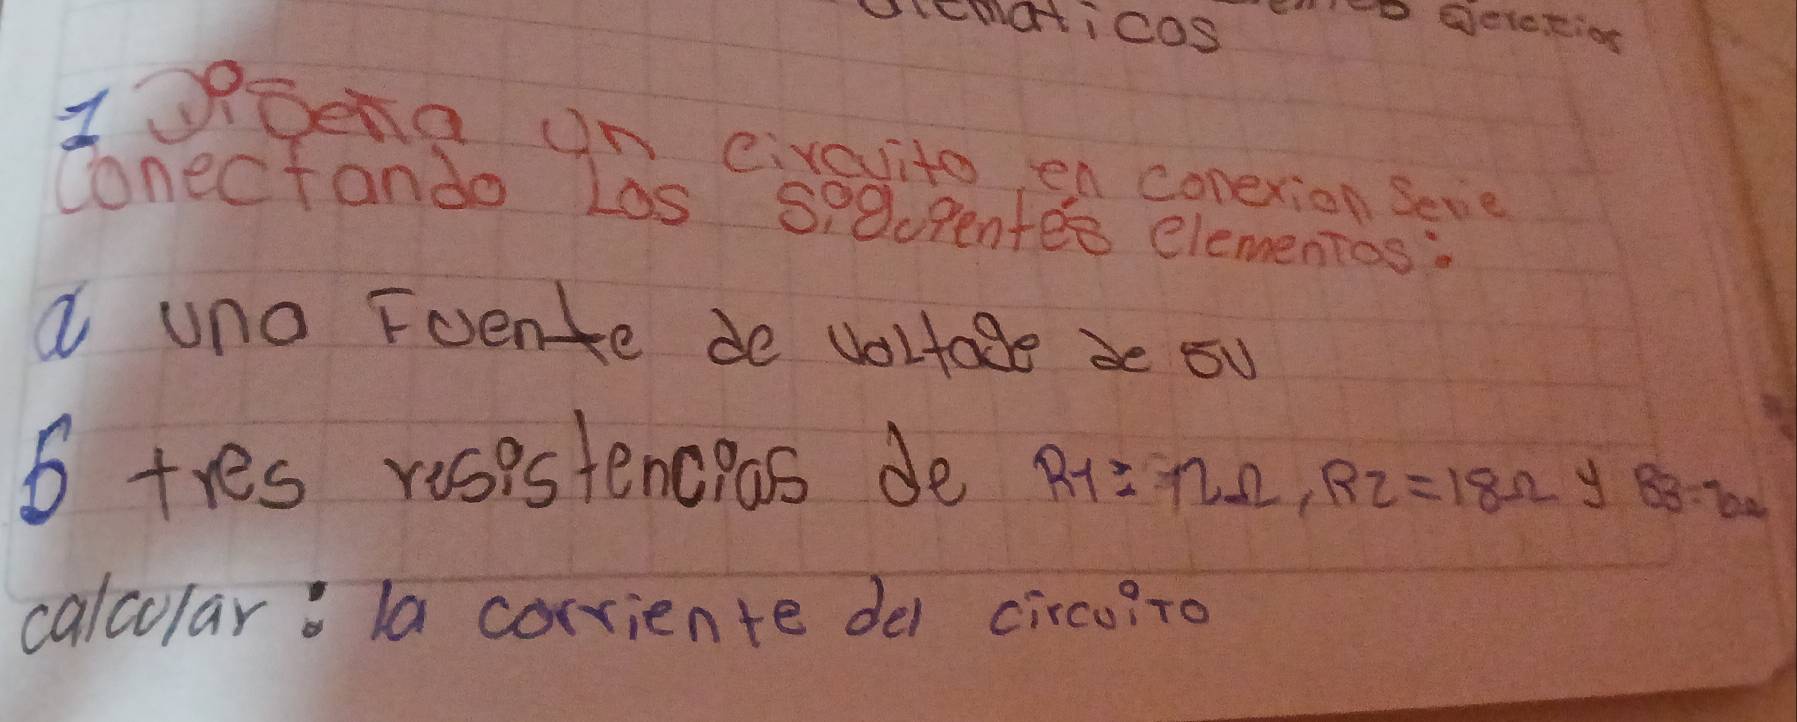 ematicos
1 Diseña un circuito en conexion Serie
Conectando Los siguientes elementos:
a una Fuente de Voltage de 5V
b tres resistencias de R1=12Ω, R2=18Ω y R3=
calcular: la corriente del circuito